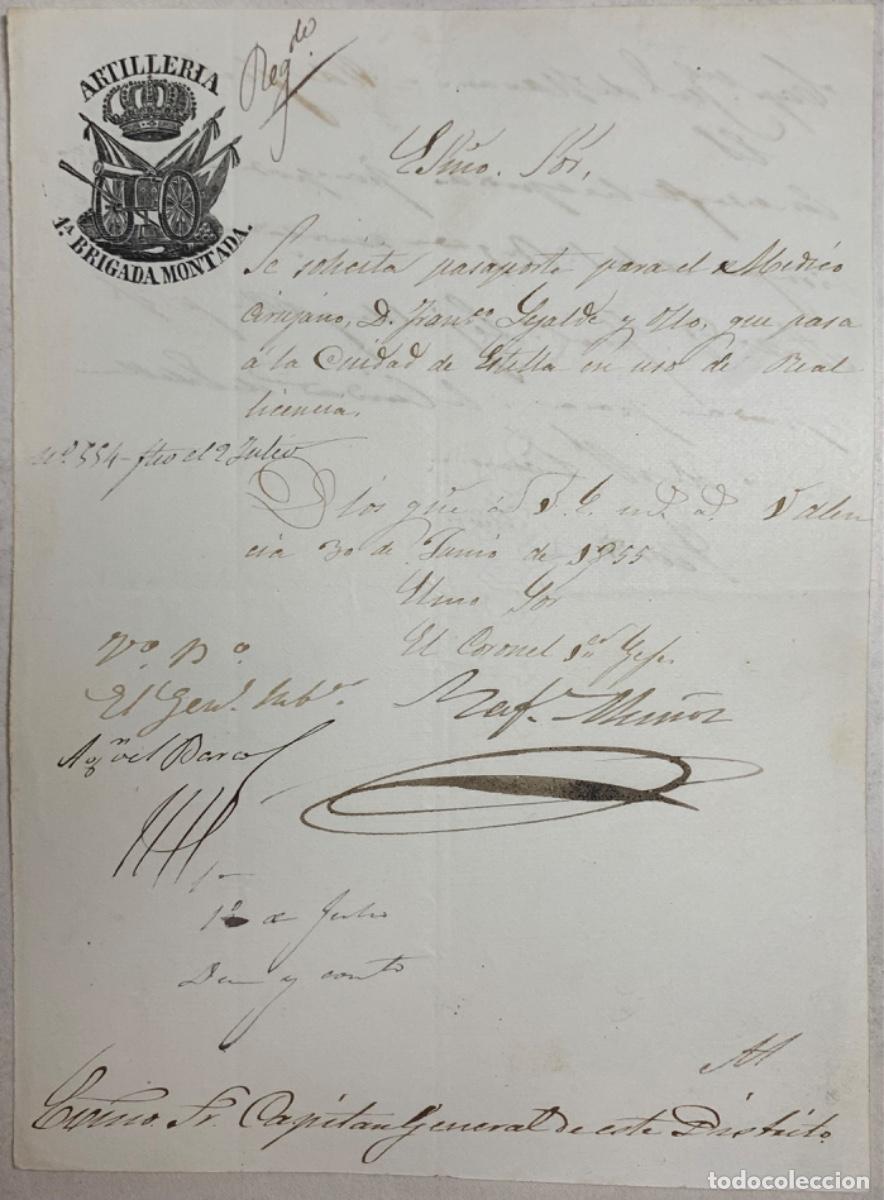 ARTILLERIA
1ª BRIGADA MONTADA.
Regdo
Esmo. Sor,
Se solicita pasaporte para el Medico
Cirujano, D. Franco y Ollo, que pasa
á la Ciudad de Estella en uso de Real
licencia.
nº. 554 - el 2 Julio
Dios gue á V. E. ms. as. Valen
cia 30 de Junio de 1855
Esmo Sor
El Coronel 1er Gefe
Rafl. Muñoz
Vº. Bº.
El Genl.
1º de Julio
y
Al
Exmo. Sr. Capitan General de este Distrito.
todocoleccion